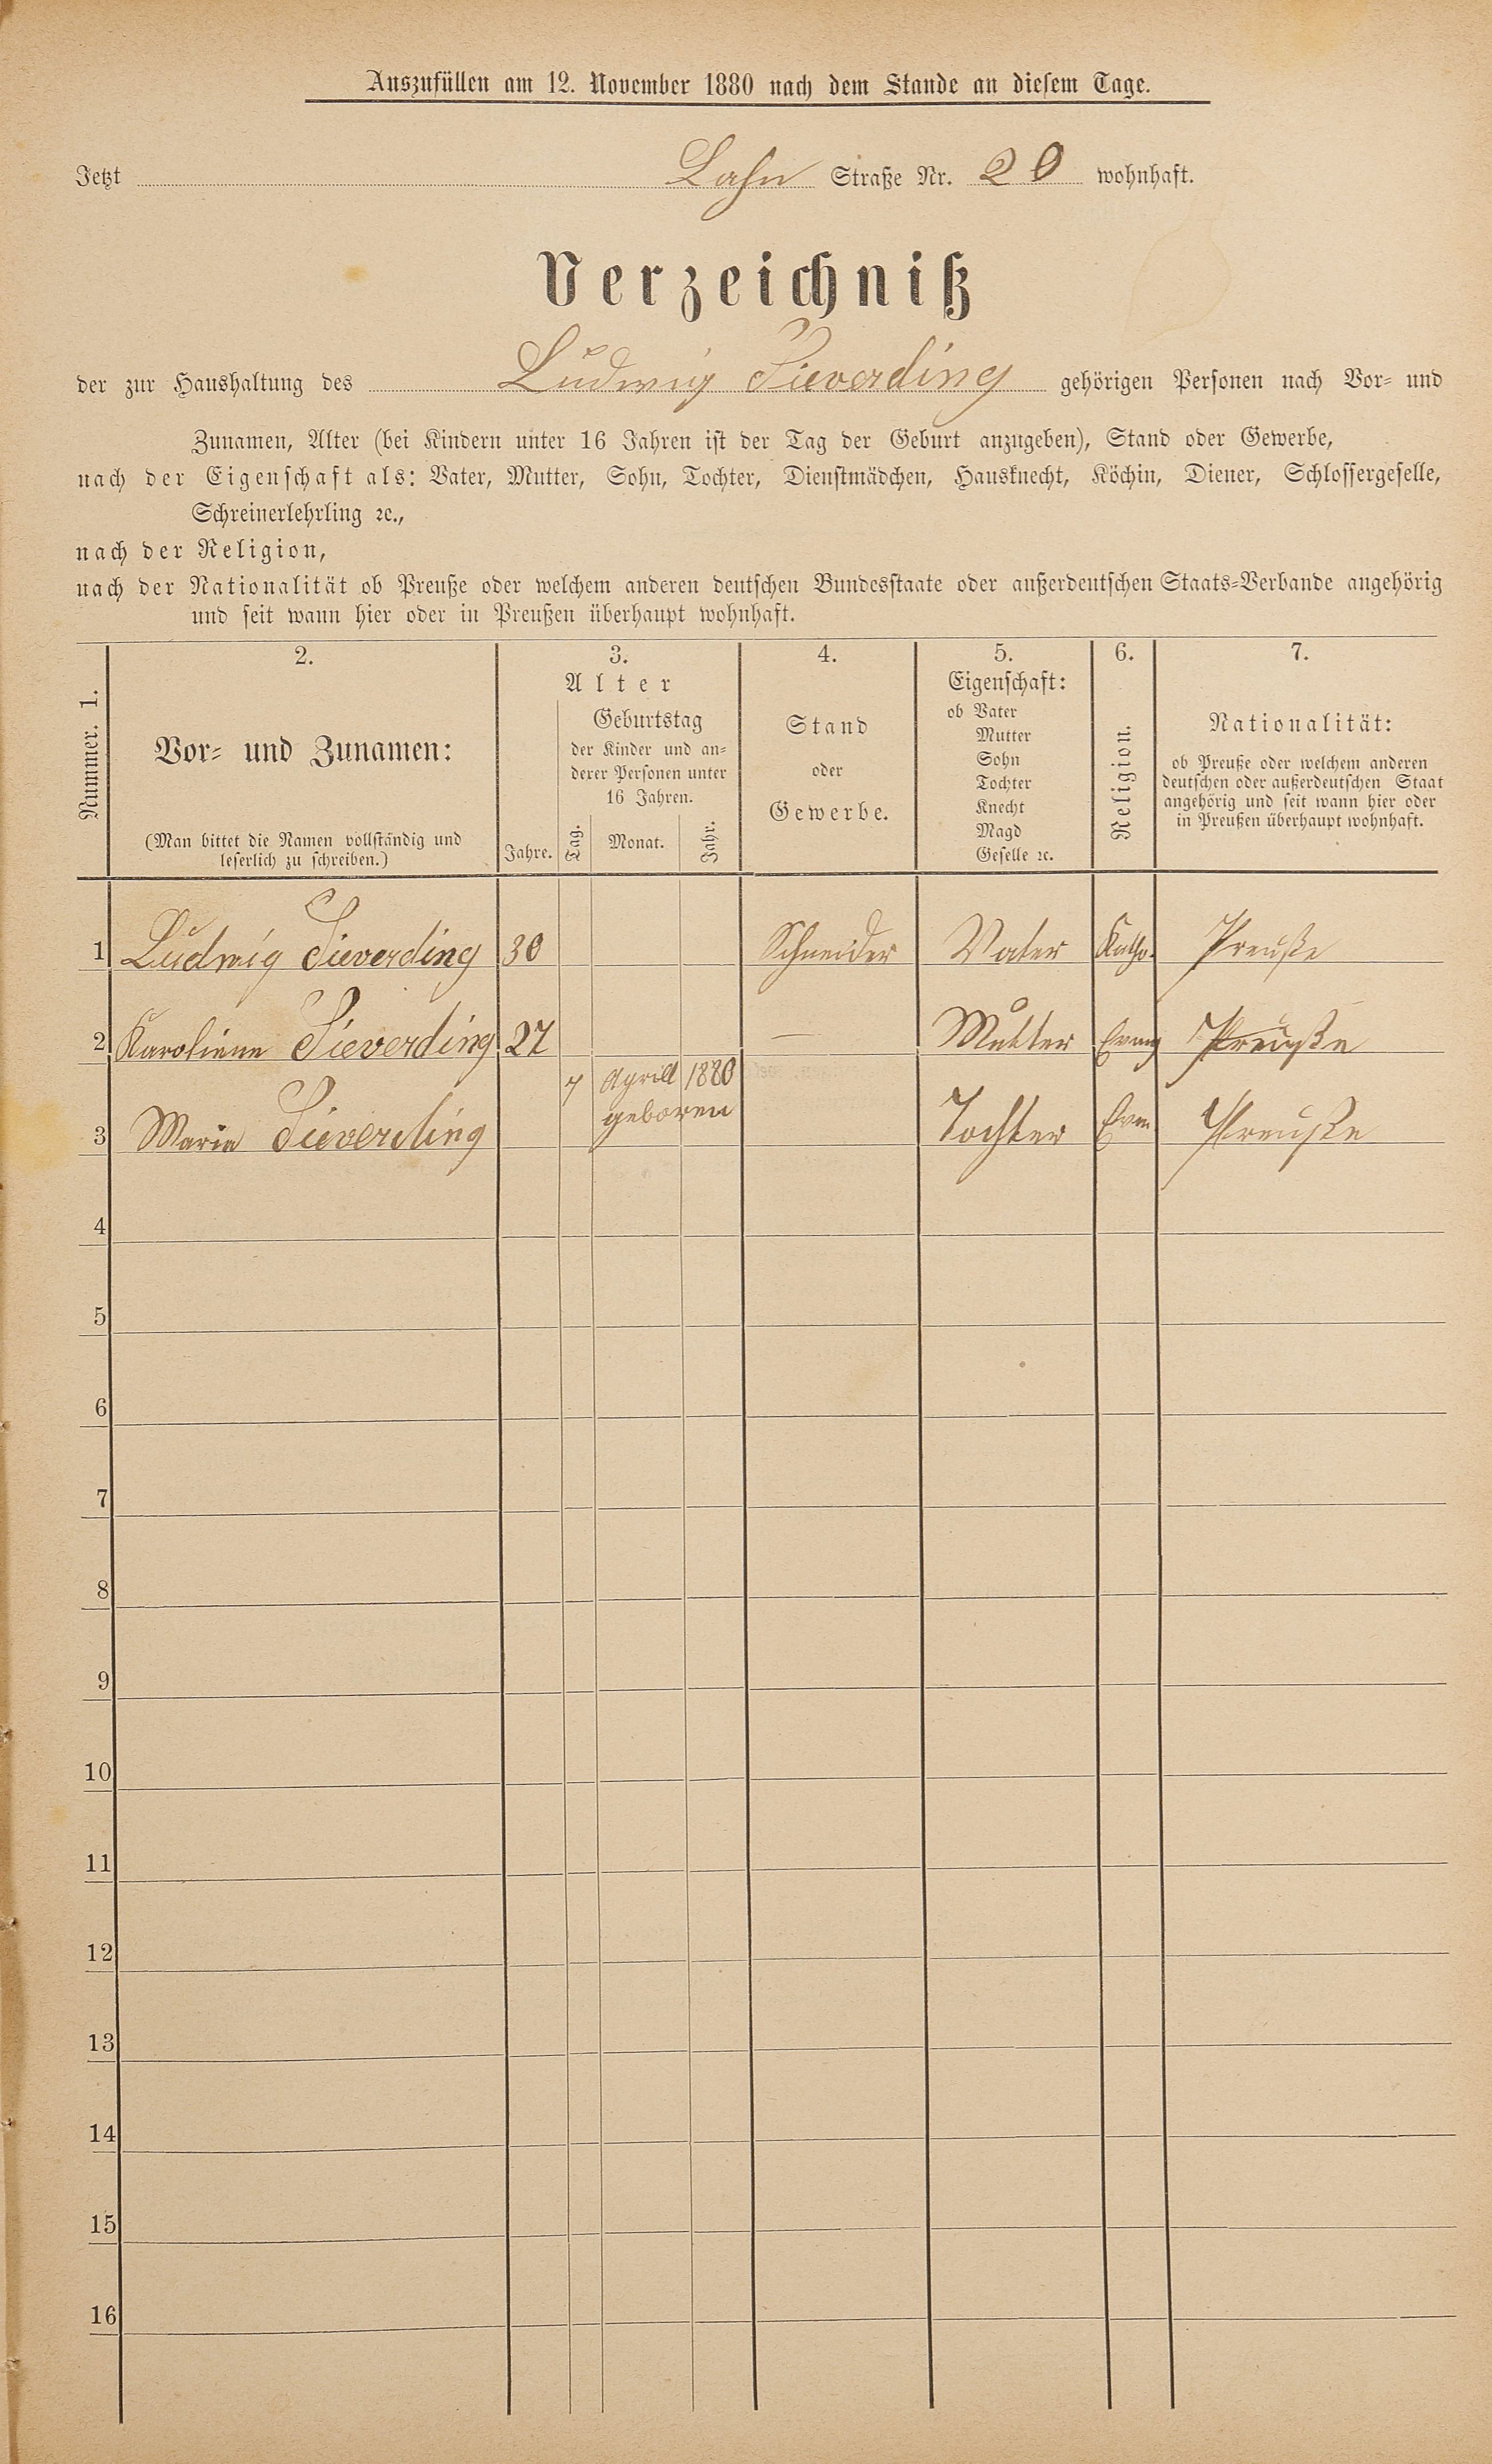 Auszufüllen am 12. November 1880 nach dem Stande an diesem Tage.
Jetzt Lahn Straße Nr. 20 wohnhaft.
Verzeichniß
der zur Haushaltung des Ludwig Sieverding gehörigen Personen nach Vor- und
Zunamen, Alter (bei Kindern unter 16 Jahren ist der Tag der Geburt anzugeben), Stand oder Gewerbe,
nach der Eigenschaft als: Vater, Mutter, Sohn, Tochter, Dienstmädchen, Hausknecht, Köchin, Diener, Schlossergeselle,
Schreinerlehrling ꝛc.,
nach der Religion,
nach der Nationalität ob Preuße oder welchem anderen deutschen Bundesstaate oder außerdeutschen Staats-Verbande angehörig
und seit wann hier oder in Preußen überhaupt wohnhaft.
Nummer. 1.
2.
Vor- und Zunamen:
(Man bittet die Namen vollständig und
leserlich zu schreiben.)
3.
Alter
Jahre.
Geburtstag
der Kinder und an-
derer Personen unter
16 Jahren.
Tag. Monat. Jahr.
4.
Stand
oder
Gewerbe.
5.
Eigenschaft:
ob Vater
Mutter
Sohn
Tochter
Knecht
Magd
Geselle ꝛc.
6.
Religion.
7.
Nationalität:
ob Preuße oder welchem anderen
deutschen oder außerdeutschen Staat
angehörig und seit wann hier oder
in Preußen überhaupt wohnhaft.
1 Ludwig Sieverding 30 Schneider Vater Katho. Preuße
2 Karoliene Sieverding 27 — Mutter Evang Preuße
7 Aprill 1880
geboren
3 Maria Sieverding Tochter Evan Preuße
4
5
6
7
8
9
10
11
12
13
14
15
16